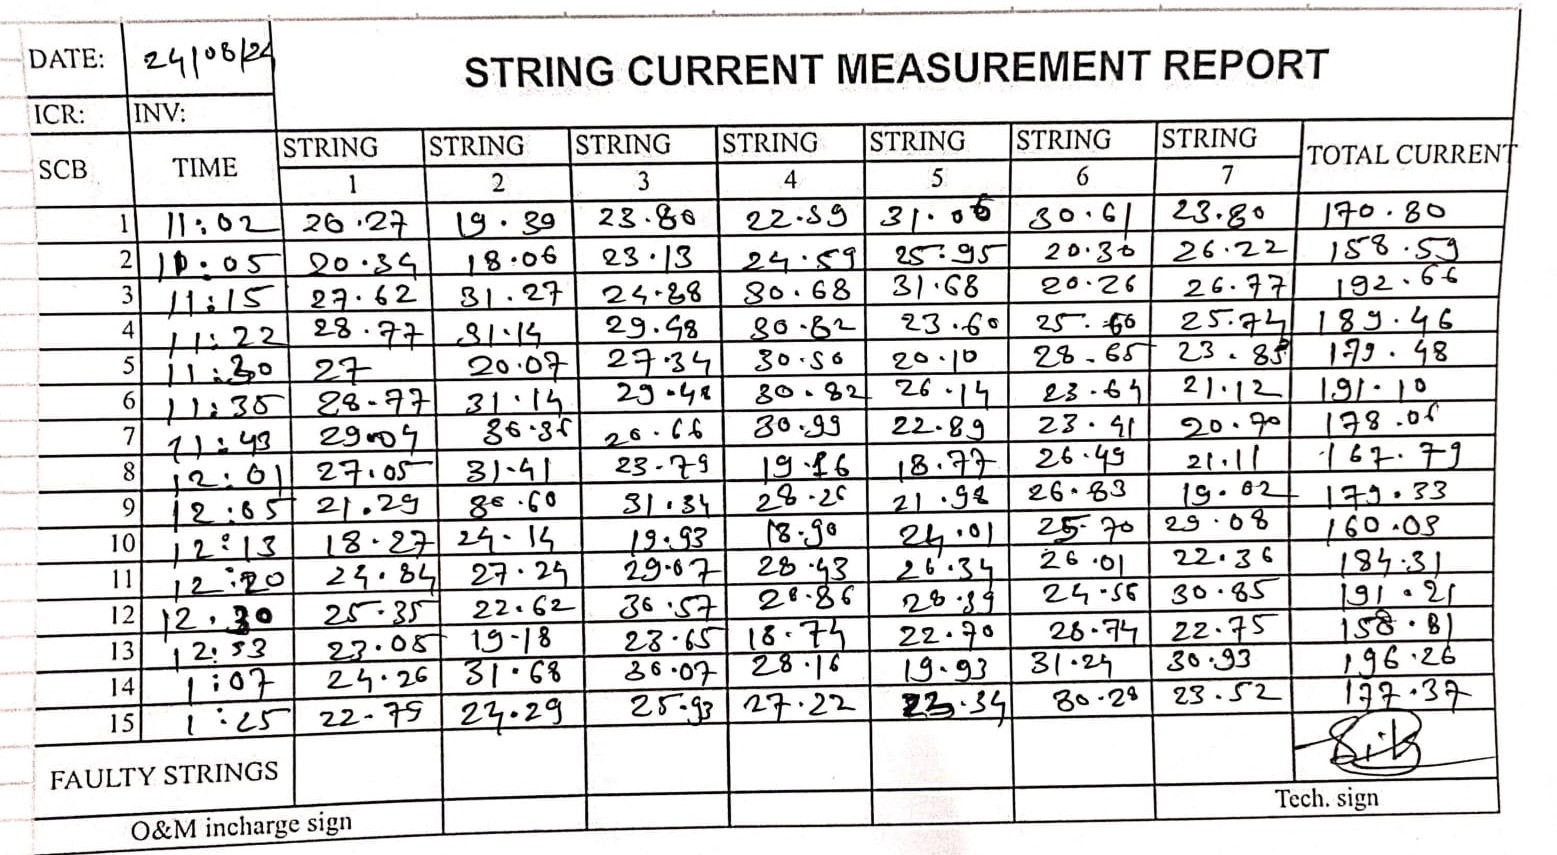 DATE: 24/08/24 STRING CURRENT MEASUREMENT REPORT
ICR: INV:
SCB TIME STRING STRING STRING STRING STRING STRING STRING TOTAL CURRENT
1 2 3 4 5 6 7
1 11:02 20.27 19.39 23.80 22.39 31.06 30.61 23.80 170.80
2 11:05 20.34 18.06 23.13 24.59 25.95 20.30 26.22 158.59
3 11:15 27.62 31.27 24.88 30.68 31.68 20.26 26.77 192.66
4 11:22 28.77 31.14 29.48 30.82 23.60 25.74 189.46
5 11:30 27 20.07 27.34 30.50 20.10 28.65 23.85 179.48
6 11:35 28.77 31.14 29.48 30.82 26.14 23.64 21.12 191.10
7 11:43 29.04 26.66 30.99 22.89 23.41 20.70
8 12:01 27.05 31.41 23.79 19.16 18.77 26.49 21.11 167.79
9 12:05 21.29 30.60 31.34 28.26 21.98 26.83 19.02 179.33
10 12:13 18.27 24.14 19.93 18.90 24.01 25.70 29.08 160.03
11 12:20 24.84 27.24 29.07 28.43 26.34 26.01 22.36 184.31
12 12.30 25.35 22.62 30.57 28.86 28.39 24.56 30.85 191.21
13 12:53 23.05 19.18 23.65 18.74 22.70 28.74 22.75 158.81
14 1:07 24.26 31.68 30.07 28.16 19.93 31.24 30.93 196.26
15 1:25 22.75 24.29 25.93 27.22 23.34 30.28 23.52 177.37
FAULTY STRINGS
Tech. sign
O&M incharge sign